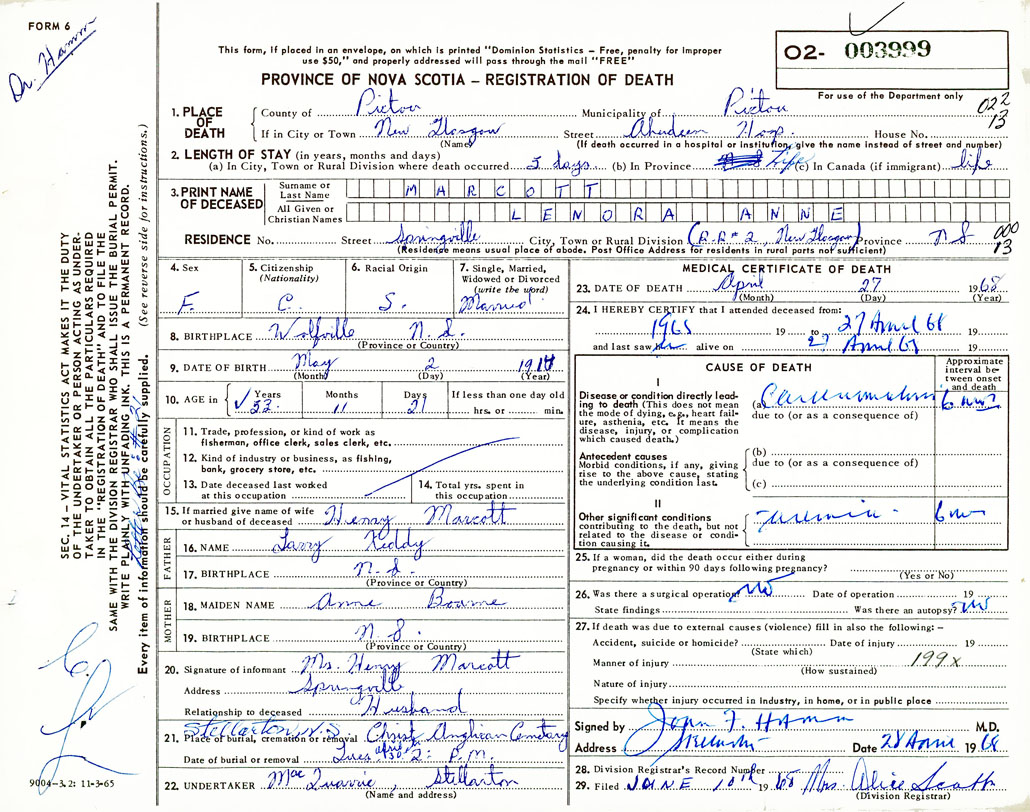 FORM 6
Dr. Hamm
This form, if placed in an envelope, on which is printed "Dominion Statistics – Free, penalty for improper
use $50," and properly addressed will pass through the mail "FREE"
PROVINCE OF NOVA SCOTIA – REGISTRATION OF DEATH
O2- 003999
For use of the Department only
022
13
1. PLACE OF DEATH
County of Pictou Municipality of Pictou
If in City or Town New Glasgow Street Aberdeen Hosp. House No.
(Name) (If death occurred in a hospital or institution, give the name instead of street and number)
2. LENGTH OF STAY (in years, months and days)
(a) In City, Town or Rural Division where death occurred 5 days (b) In Province Life (c) In Canada (if immigrant) life
3. PRINT NAME OF DECEASED
Surname or Last Name MARCOTT
All Given or Christian Names LENORA ANNE
RESIDENCE No. Street Springville City, Town or Rural Division (R.R. #2, New Glasgow) Province N S
000
13
(Residence means usual place of abode. Post Office Address for residents in rural parts not sufficient)
4. Sex F.
5. Citizenship (Nationality) C.
6. Racial Origin S.
7. Single, Married, Widowed or Divorced (write the word) Married
8. BIRTHPLACE Wolfville N.S.
(Province or Country)
9. DATE OF BIRTH May 2 191
(Month) (Day) (Year)
10. AGE in Years Months 11 Days 21 If less than one day old hrs. or min.
OCCUPATION
11. Trade, profession, or kind of work as fisherman, office clerk, sales clerk, etc.
12. Kind of industry or business, as fishing, bank, grocery store, etc.
13. Date deceased last worked at this occupation
14. Total yrs. spent in this occupation
15. If married give name of wife or husband of deceased Henry Marcott
FATHER
16. NAME Larry Keddy
17. BIRTHPLACE N.S.
(Province or Country)
MOTHER
18. MAIDEN NAME Anne Bourne
19. BIRTHPLACE N.S.
(Province or Country)
20. Signature of informant Mr. Henry Marcott
Address Springville
Relationship to deceased Husband
Stellarton N.S.
21. Place of burial, cremation or removal Christ Anglican Cemetary
Date of burial or removal Tues april 30th 2: P.M.
22. UNDERTAKER Stellarton
(Name and address)
MEDICAL CERTIFICATE OF DEATH
23. DATE OF DEATH April 27 1968
(Month) (Day) (Year)
24. I HEREBY CERTIFY that I attended deceased from:
1965 19 to 27 April 68 19
and last saw her alive on 27 April 67 19
CAUSE OF DEATH
Approximate interval between onset and death
I
Disease or condition directly leading to death (This does not mean the mode of dying, e.g., heart failure, asthenia, etc. It means the disease, injury, or complication which caused death.)
(a) Carcinomatosis 6 mos
due to (or as a consequence of)
Antecedent causes
Morbid conditions, if any, giving rise to the above cause, stating the underlying condition last.
(b)
due to (or as a consequence of)
(c)
II
Other significant conditions contributing to the death, but not related to the disease or condition causing it.
Uremia
25. If a woman, did the death occur either during pregnancy or within 90 days following pregnancy?
(Yes or No)
26. Was there a surgical operation? no Date of operation 19
State findings Was there an autopsy? no
27. If death was due to external causes (violence) fill in also the following: –
Accident, suicide or homicide? Date of injury 19
(State which)
Manner of injury 199x
(How sustained)
Nature of injury
Specify whether injury occurred in Industry, in home, or in public place
Signed by John F. Hamm M.D.
Address Stellarton Date 28 April 1968
28. Division Registrar's Record Number
29. Filed JUNE 10th 1968 Mrs. Alice Scott
(Division Registrar)
SEC. 14 – VITAL STATISTICS ACT MAKES IT THE DUTY
OF THE UNDERTAKER OR PERSON ACTING AS UNDERTAKER TO OBTAIN ALL THE PARTICULARS REQUIRED
IN THE "REGISTRATION OF DEATH" AND TO FILE THE
SAME WITH THE DIVISION REGISTRAR WHO SHALL ISSUE THE BURIAL PERMIT.
WRITE PLAINLY WITH UNFADING INK. THIS IS A PERMANENT RECORD.
Every item of information should be carefully supplied. (See reverse side for instructions.)
9004-3.2: 11-3-65